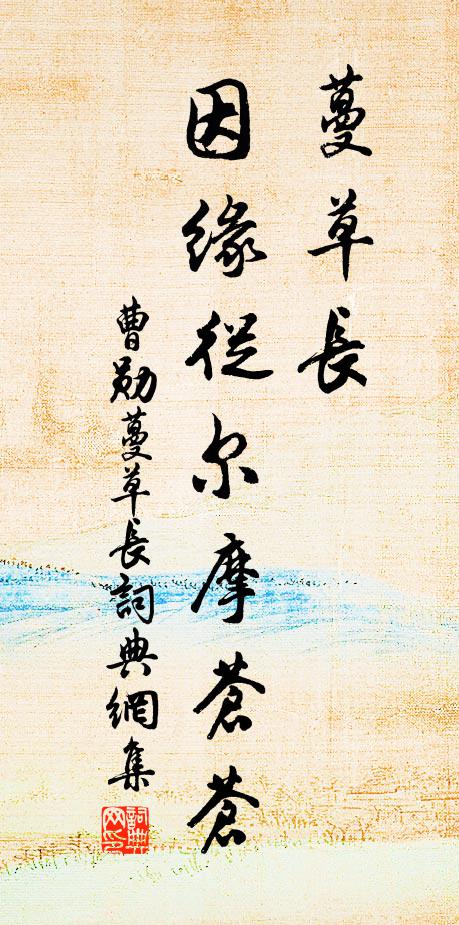 蔓草長
因緣從尔摩蒼蒼
曹勛蔓草長詞典網集
詞典网印